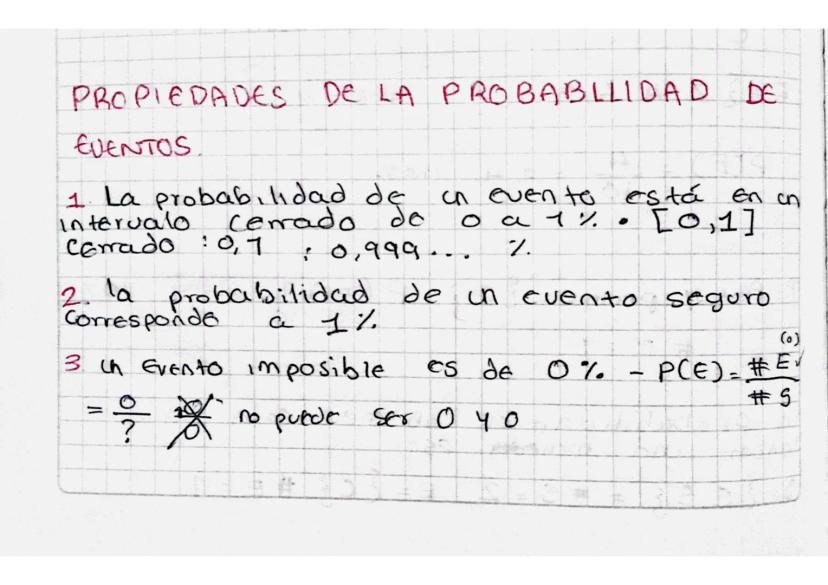 PROPIEDADES DE LA PROBABLLIDAD DE
EVENTOS.
1. La probabilidad de un evento está en un
intervalo cerrado de 0 a 1%. [0,1]
cerrado : 0,1 : 0,999... %.
2. la probabilidad de un evento seguro
corresponde a 1%
3 un Evento imposible es de 0% - P(E) = #E / #S (0)
= 0/? no puede ser 0 y 0